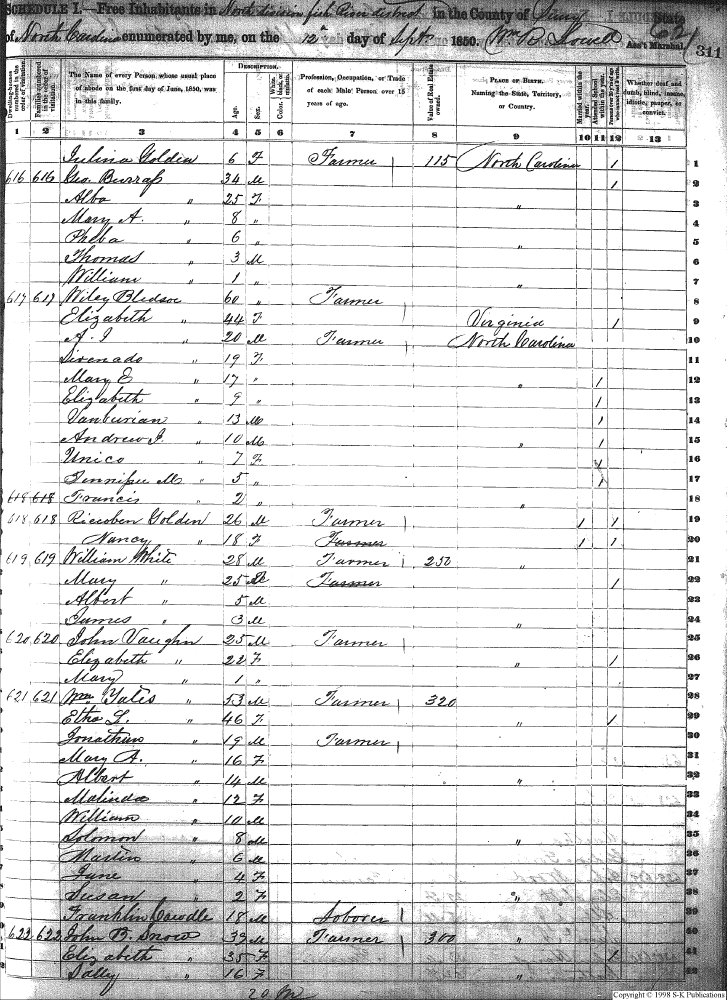 SCHEDULE I.—Free Inhabitants in North division in the County of State
of North Carolina enumerated by me, on the 12th day of Sept 1850. Wm B. Ass't Marshal. 311
Dwelling-houses numbered in the order of visitation.
Families numbered in the order of visitation.
The Name of every Person whose usual place of abode on the first day of June, 1850, was in this family.
DESCRIPTION.
Age.
Sex.
Color, White, black, or mulatto.
Profession, Occupation, or Trade of each Male Person over 15 years of age.
Value of Real Estate owned.
PLACE OF BIRTH. Naming the State, Territory, or Country.
Married within the year.
Attended School within the year.
Persons over 20 y'rs of age who cannot read and write.
Whether deaf and dumb, blind, insane, idiotic, pauper, or convict.
1 2 3 4 5 6 7 8 9 10 11 12 13
Golden 6 F Farmer 115 North Carolina / 1
616 616 Geo. Burrass 34 M / 2
Alba " 25 F " 3
Mary A. " 8 " 4
Pheba " 6 " " 5
Thomas " 3 M 6
William " 1 " " 7
617 617 Wiley Bledsoe 60 " Farmer 8
Elizabeth " 44 F Virginia / 9
A. J " 20 M Farmer North Carolina 10
" 19 F 11
Mary E " 17 " " / 12
Elizabeth " 9 " / 13
Vanburian " 13 M / 14
Andrew J. " 10 M " / 15
Unico " 7 F / 16
M " 5 " / 17
618 618 Francis " 2 " " 18
618 618 Golden 26 M Farmer / / 19
Nancy " 18 F Farmer " / / 20
619 619 William White 28 M Farmer 250 " 21
Mary " 25 M Farmer / 22
Albert " 5 M 23
James " 3 M " 24
620 620 John Vaughn 25 M Farmer 25
Elizabeth " 22 F " / 26
Mary " 1 " 27
621 621 Wm Yates " 53 M Farmer 320 28
Etha L. " 46 F " / 29
Jonathan " 19 M Farmer 30
Mary A. " 16 F 31
Albert " 14 M " 32
Malinda " 12 F 33
William " 10 M 34
Solomon " 8 M " 35
Martin " 6 M 36
June " 4 F 37
Susan " 2 F " 38
Franklin Cawdle 18 M Laborer 39
622 622 John B. Snow 39 M Farmer 300 " 40
Elizabeth " 35 F / 41
Sally " 16 F 42
20 M
Copyright © 1998 S-K Publications